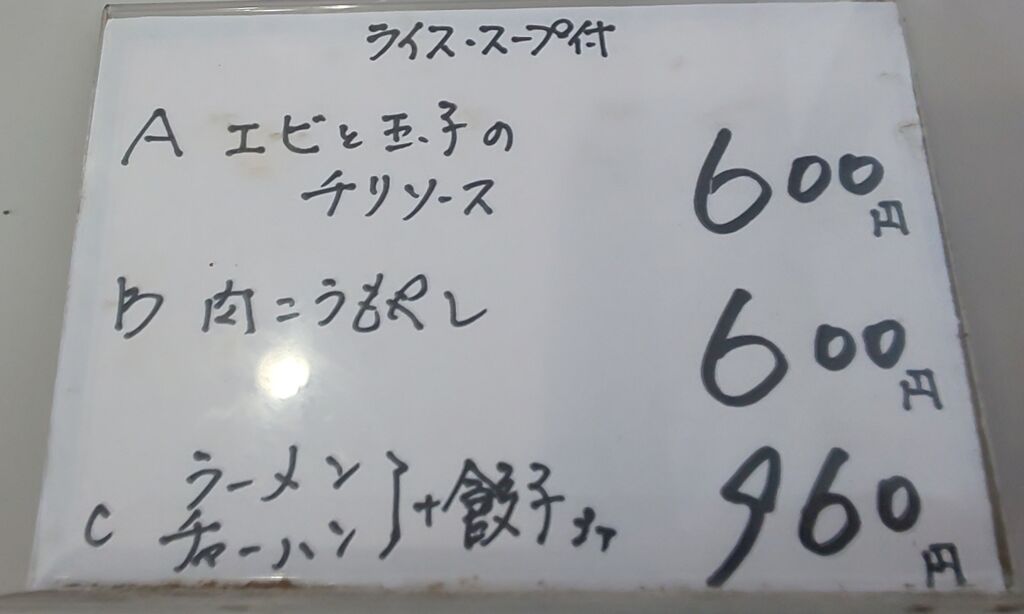 ライス・スープ付
A エビと玉子の
チリソース 600円
B 肉ニラもやし 600円
C ラーメン
チャーハン }+餃子 960円